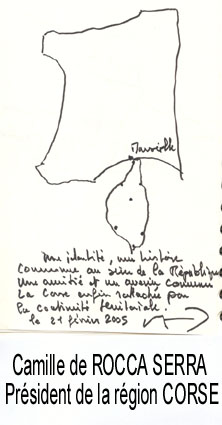 Marseille
Une identité, une histoire
commune au sein de la République
Une amitié et un avenir commun
La Corse enfin rattachée par
la continuité territoriale.
le 21 février 2005
Camille de ROCCA SERRA
Président de la région CORSE